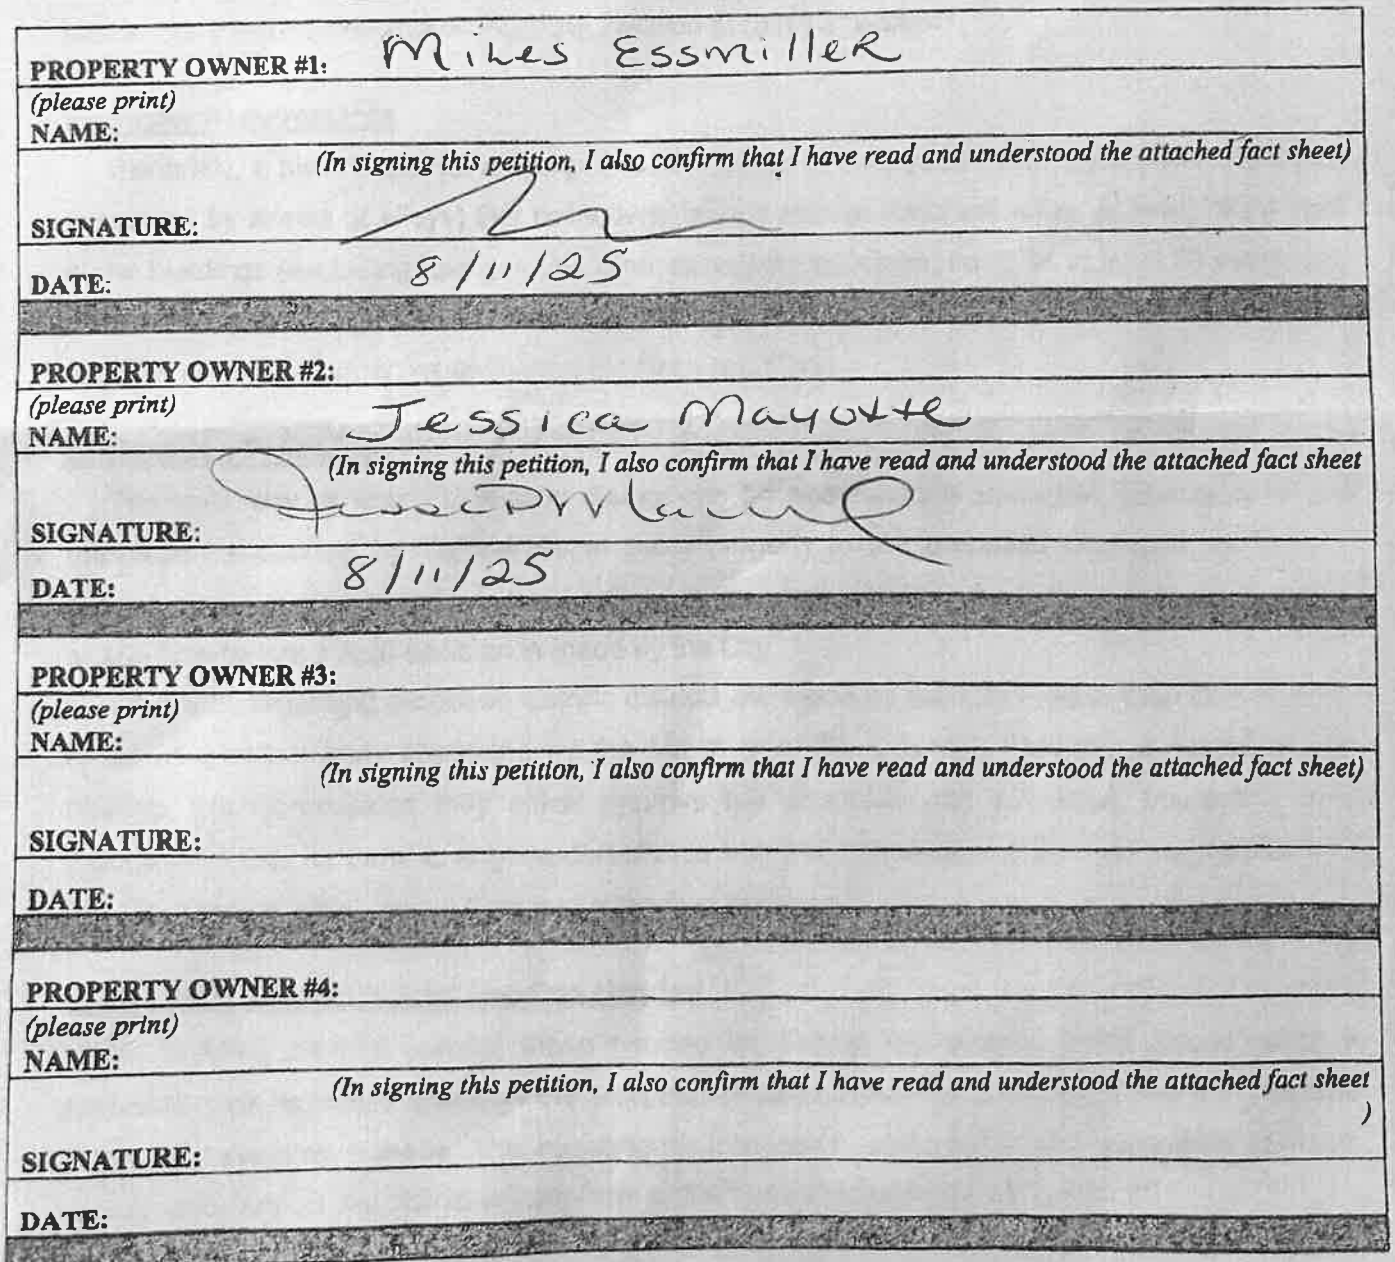 PROPERTY OWNER #1: Miles EssmilleR
(please print)
NAME:
(In signing this petition, I also confirm that I have read and understood the attached fact sheet)
SIGNATURE:
DATE: 8/11/25
PROPERTY OWNER #2:
(please print)
NAME: Jessica Mayotte
(In signing this petition, I also confirm that I have read and understood the attached fact sheet
SIGNATURE:
DATE: 8/11/25
PROPERTY OWNER #3:
(please print)
NAME:
(In signing this petition, I also confirm that I have read and understood the attached fact sheet)
SIGNATURE:
DATE:
PROPERTY OWNER #4:
(please print)
NAME:
(In signing this petition, I also confirm that I have read and understood the attached fact sheet
)
SIGNATURE:
DATE: